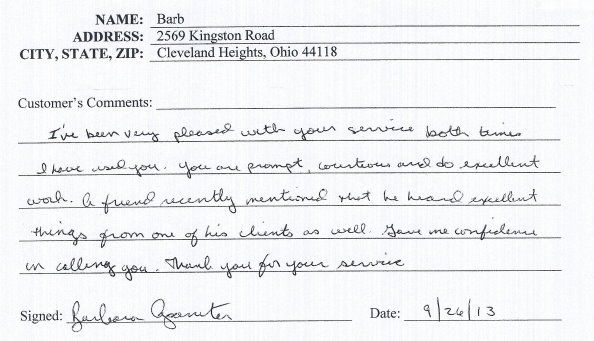 NAME: Barb
ADDRESS: 2569 Kingston Road
CITY, STATE, ZIP: Cleveland Heights, Ohio 44118
Customer's Comments:
I've been very pleased with your service both times
I have used you. You are prompt, courteous and do excellent
work. A friend recently mentioned that he heard excellent
things from one of his clients as well. Gave me confidence
in calling you. Thank you for your service
Signed: Barbara
Date: 9/26/13